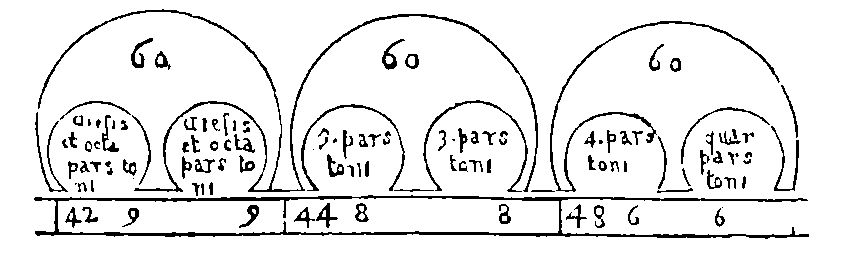 60 60 60
diesis et octa pars to ni
diesis et octa pars to ni
3. pars toni
3. pars toni
4. pars toni
quar pars toni
42 9 9 44 8 8 48 6 6